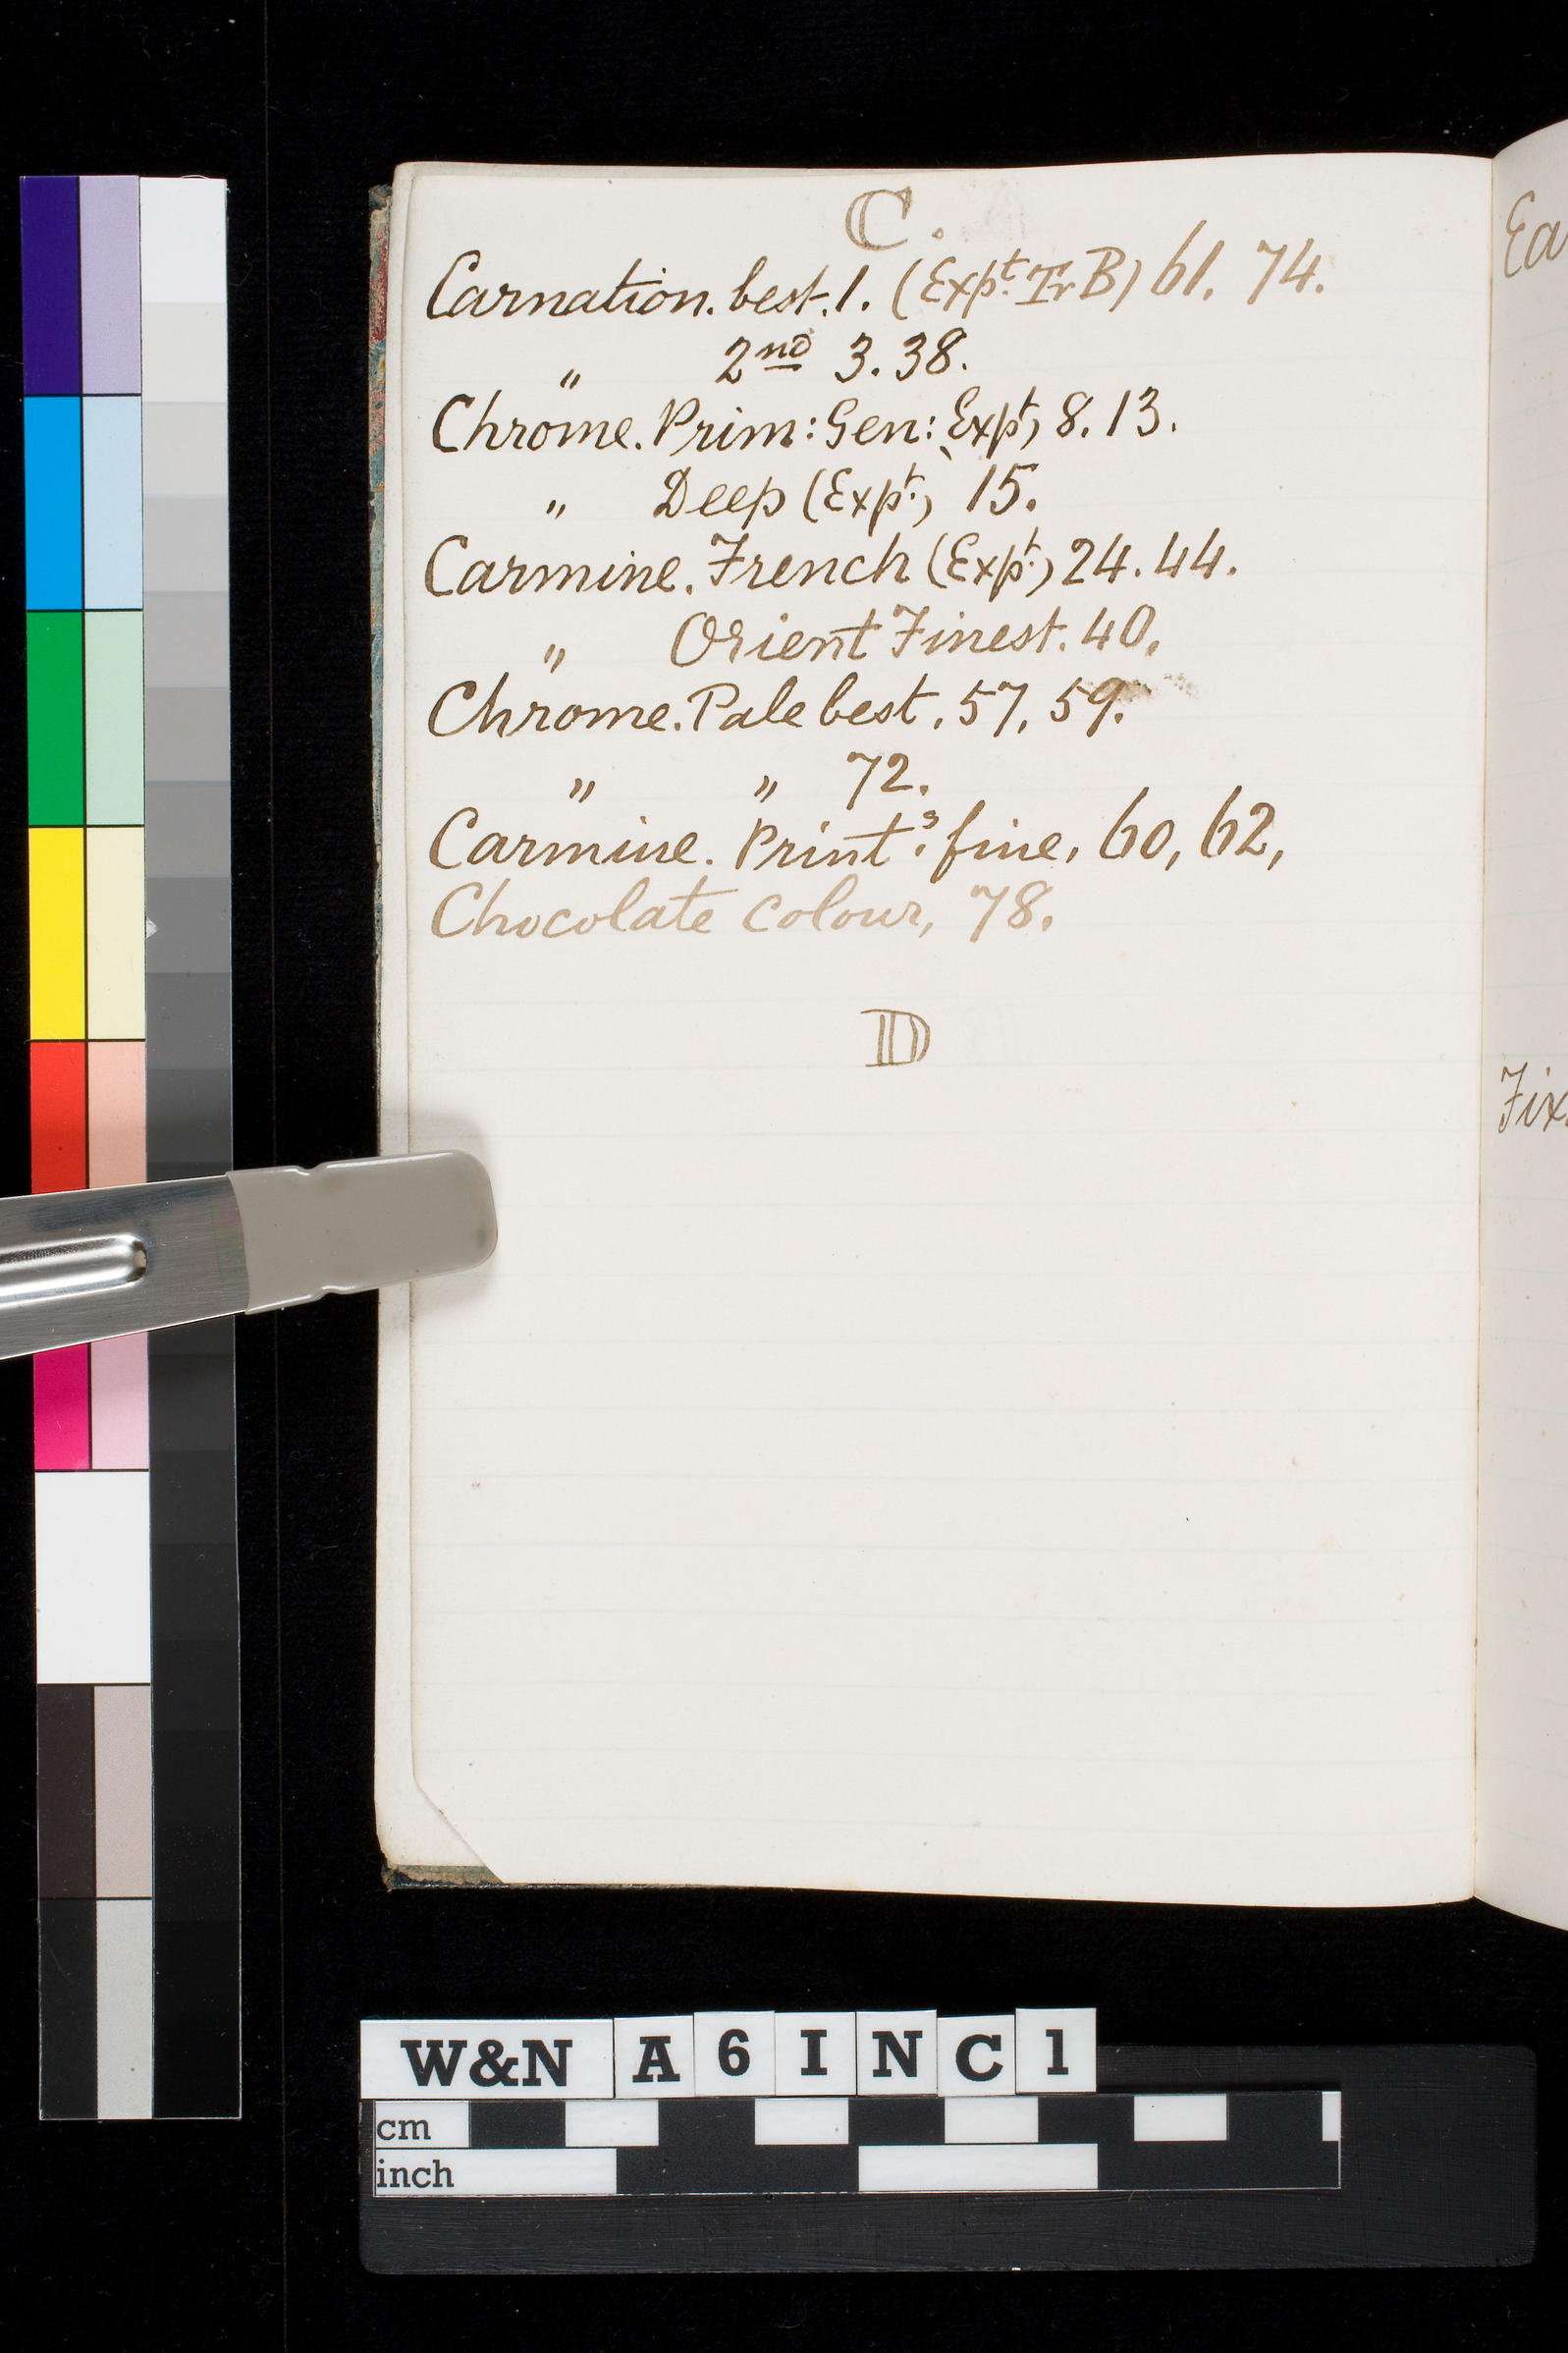 C.
Carnation. best. 1. (Expt. Tr B) 61. 74.
" 2nd 3. 38.
Chrome. Prim: Gen: Expt) 8. 13.
" Deep (Expt.) 15.
Carmine. French (Expt.) 24. 44.
" Orient Finest. 40.
Chrome. Pale best. 57, 59.
" " 72.
Carmine. Print.s fine, 60, 62,
Chocolate colour, 78.
D
Ea
Fix
W&N A 6 I N C 1
cm
inch